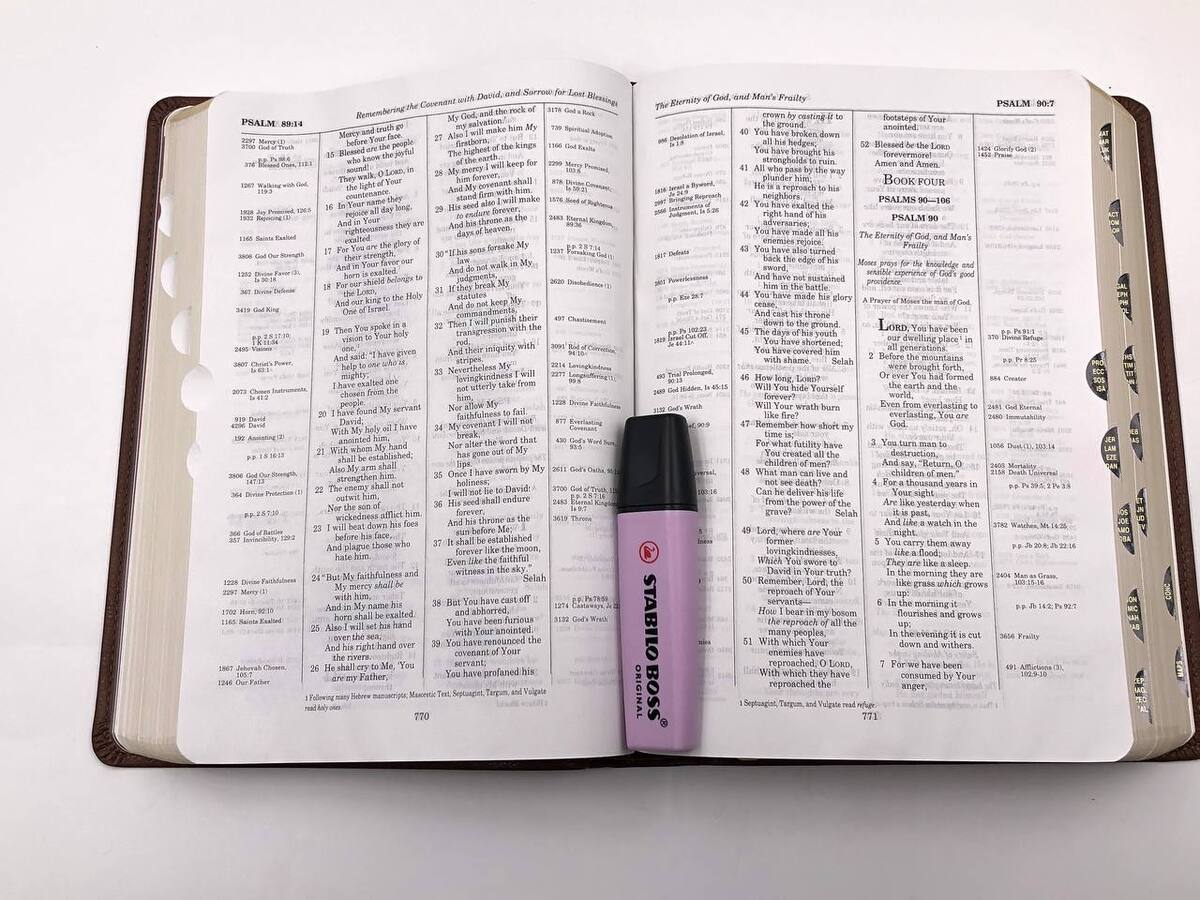 PSALM 89:14
Remembering the Covenant with David, and Sorrow for Lost Blessings
2297 Mercy (1)
3700 God of Truth
p.p. Ps 98:6
376 Blessed Ones, 112:1
1267 Walking with God,
119:3
1928 Joy Promised, 126:5
1932 Rejoicing (1)
1165 Saints Exalted
3806 God Our Strength
1252 Divine Favor (3),
Is 30:18
367 Divine Defense
3419 God King
p.p. 2 S 17:10;
1 K 11:34
2495 Visions
3807 Christ's Power,
Is 63:1
2073 Chosen Instruments,
Is 41:2
919 David
4296 David
192 Anointing (2)
p.p. 1 S 16:13
3806 God Our Strength,
147:13
364 Divine Protection (1)
p.p. 2 S 7:10
366 God of Battles
357 Invincibility, 129:2
1228 Divine Faithfulness
2297 Mercy (1)
1702 Horn, 92:10
1165 Saints Exalted
1867 Jehovah Chosen,
105:7
1246 Our Father
Mercy and truth go
before Your face.
15 Blessed are the people
who know the joyful
sound!
They walk, O LORD, in
the light of Your
countenance.
16 In Your name they
rejoice all day long,
And in Your
righteousness they are
exalted.
17 For You are the glory of
their strength,
And in Your favor our
horn is exalted.
18 For our shield belongs to
the LORD,
And our king to the Holy
One of Israel.
19 Then You spoke in a
vision to Your holy
one,1
And said: "I have given
help to one who is
mighty;
I have exalted one
chosen from the
people.
20 I have found My servant
David;
With My holy oil I have
anointed him,
21 With whom My hand
shall be established;
Also My arm shall
strengthen him.
22 The enemy shall not
outwit him,
Nor the son of
wickedness afflict him.
23 I will beat down his foes
before his face,
And plague those who
hate him.
24 "But My faithfulness and
My mercy shall be
with him,
And in My name his
horn shall be exalted.
25 Also I will set his hand
over the sea,
And his right hand over
the rivers.
26 He shall cry to Me, 'You
are my Father,
My God, and the rock of
my salvation.'
27 Also I will make him My
firstborn,
The highest of the kings
of the earth.
28 My mercy I will keep for
him forever,
And My covenant shall
stand firm with him.
29 His seed also I will make
to endure forever,
And his throne as the
days of heaven.
30 "If his sons forsake My
law
And do not walk in My
judgments,
31 If they break My
statutes
And do not keep My
commandments,
32 Then I will punish their
transgression with the
rod,
And their iniquity with
stripes.
33 Nevertheless My
lovingkindness I will
not utterly take from
him,
Nor allow My
faithfulness to fail.
34 My covenant I will not
break,
Nor alter the word that
has gone out of My
lips.
35 Once I have sworn by My
holiness;
I will not lie to David:
36 His seed shall endure
forever,
And his throne as the
sun before Me;
37 It shall be established
forever like the moon,
Even like the faithful
witness in the sky."
Selah
38 But You have cast off
and abhorred,
You have been furious
with Your anointed.
39 You have renounced the
covenant of Your
servant;
You have profaned his
3178 God a Rock
739 Spiritual Adoption
1166 God Exalts
2299 Mercy Promised,
103:8
878 Divine Covenant,
Is 59:21
1576 Seed of Righteous
2483 Eternal Kingdom,
89:36
p.p. 2 S 7:14
1237 Forsaking God (1)
2620 Disobedience (1)
497 Chastisement
3091 Rod of Correction,
94:10
2214 Lovingkindness
2277 Longsuffering (1),
99:8
1228 Divine Faithfulness
877 Everlasting
Covenant
430 God's Word Sure,
93:5
2611 God's Oaths,
3700 God of Truth,
p.p. 2 S 7:16
2483 Eternal Kingdom,
Is 9:7
3619 Throne
p.p. Ps 78:59
1274 Castaways,
3132 God's Wrath
1 Following many Hebrew manuscripts; Masoretic Text, Septuagint, Targum, and Vulgate
read holy ones.
770
STABILO BOSS®
ORIGINAL
The Eternity of God, and Man's Frailty
PSALM 90:7
986 Desolation of Israel,
Is 1:8
1816 Israel a Byword,
Je 24:9
2997 Bringing Reproach
2566 Instruments of
Judgment, Is 5:26
1817 Defeats
3801 Powerlessness
p.p. Eze 28:7
p.p. Ps 102:23
1819 Israel Cut Off,
Je 44:11
493 Trial Prolonged,
90:13
2489 God Hidden, Is 45:15
3132 God's Wrath
90:9
103:16
crown by casting it to
the ground.
40 You have broken down
all his hedges;
You have brought his
strongholds to ruin.
41 All who pass by the way
plunder him;
He is a reproach to his
neighbors.
42 You have exalted the
right hand of his
adversaries;
You have made all his
enemies rejoice.
43 You have also turned
back the edge of his
sword,
And have not sustained
him in the battle.
44 You have made his glory
cease,
And cast his throne
down to the ground.
45 The days of his youth
You have shortened;
You have covered him
with shame. Selah
46 How long, LORD?
Will You hide Yourself
forever?
Will Your wrath burn
like fire?
47 Remember how short my
time is;
For what futility have
You created all the
children of men?
48 What man can live and
not see death?
Can he deliver his life
from the power of the
grave? Selah
49 Lord, where are Your
former
lovingkindnesses,
Which You swore to
David in Your truth?
50 Remember, Lord, the
reproach of Your
servants—
How I bear in my bosom
the reproach of all the
many peoples,
51 With which Your
enemies have
reproached, O LORD,
With which they have
reproached the
footsteps of Your
anointed.
52 Blessed be the LORD
forevermore!
Amen and Amen.
BOOK FOUR
PSALMS 90—106
PSALM 90
The Eternity of God, and Man's
Frailty
Moses prays for the knowledge and
sensible experience of God's good
providence.
A Prayer of Moses the man of God.
LORD, You have been
our dwelling place1 in
all generations.
2 Before the mountains
were brought forth,
Or ever You had formed
the earth and the
world,
Even from everlasting to
everlasting, You are
God.
3 You turn man to
destruction,
And say, "Return, O
children of men."
4 For a thousand years in
Your sight
Are like yesterday when
it is past,
And like a watch in the
night.
5 You carry them away
like a flood;
They are like a sleep.
In the morning they are
like grass which grows
up:
6 In the morning it
flourishes and grows
up;
In the evening it is cut
down and withers.
7 For we have been
consumed by Your
anger,
1424 Glorify God (2)
1452 Praise
p.p. Ps 91:1
370 Divine Refuge
p.p. Pr 8:25
884 Creator
2481 God Eternal
2480 Immutability
1056 Dust (1), 103:14
2403 Mortality
2158 Death Universal
p.p. Ps 39:5, 2 Pe 3:8
3782 Watches, Mt 14:25
p.p. Jb 20:8; Jb 22:16
2404 Man as Grass,
103:15-16
p.p. Jb 14:2; Ps 92:7
3656 Frailty
491 Afflictions (3),
102:9-10
1 Septuagint, Targum, and Vulgate read refuge.
771
PRO
ECC
SOS
ISA
JER
LAM
EZE
DAN
HOS
JOE
AMO
OBA
CONC
MAPS